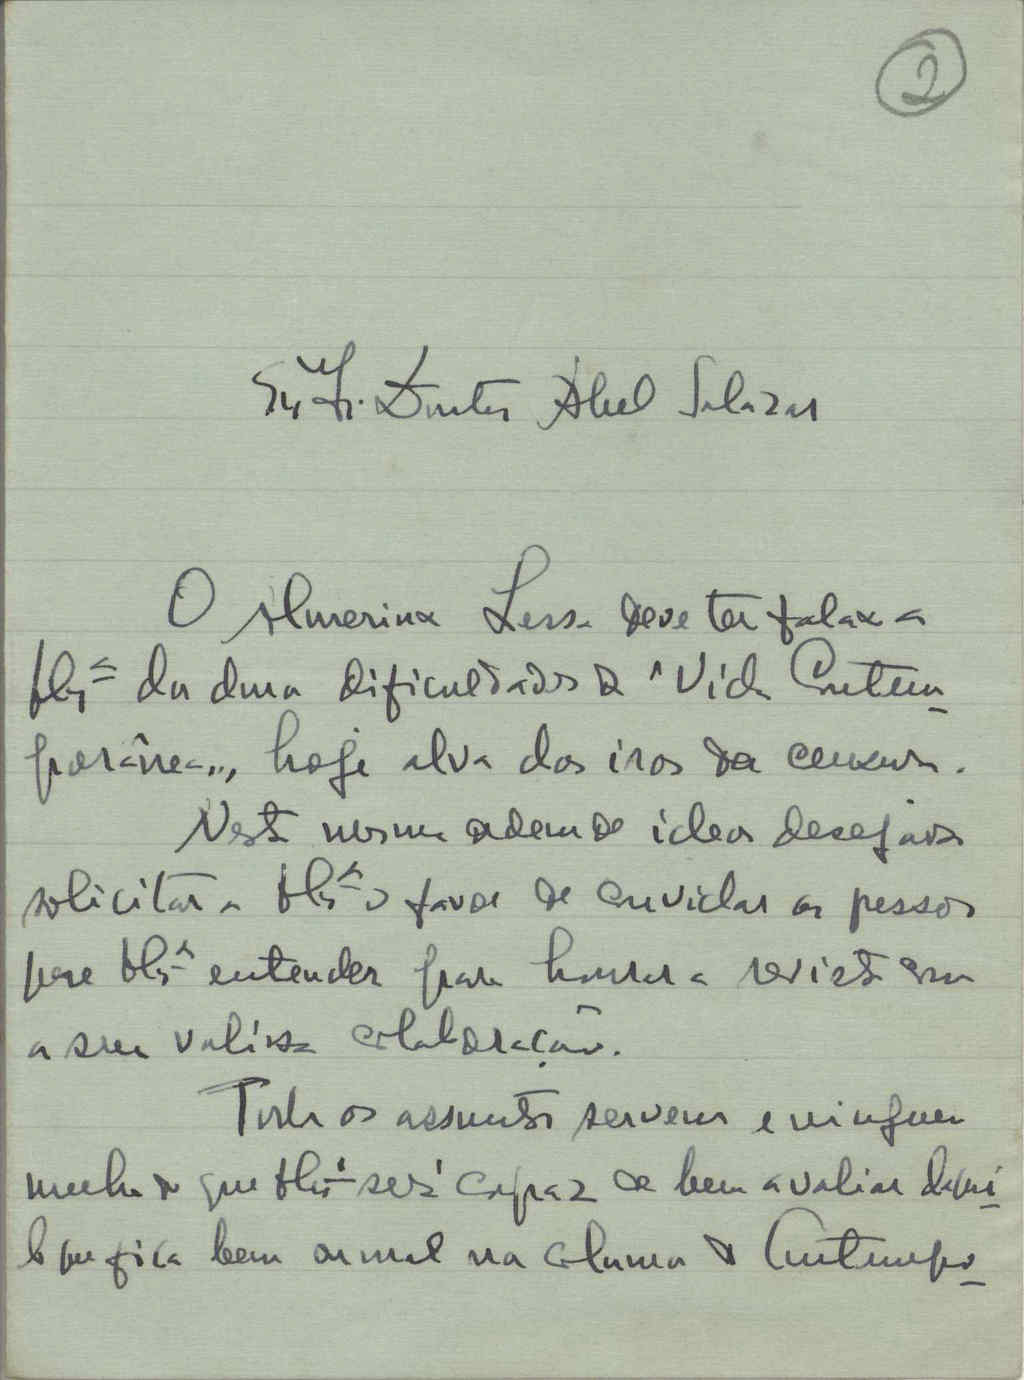 2
Sr. Doutor Abel Salazar
O Almerindo Lessa deve ter falado a
V. Ex.ª das duras dificuldades da "Vida Contem-
porânea", hoje alvo das iras da censura.
Nesta mesma ordem de ideas desejava
solicitar a V. Ex.ª o favor de convidar as pessoas
que V. Ex.ª entender para honrar a revista com
a sua valiosa colaboração.
Todos os assuntos servem e ninguem
melhor do que V. Ex.ª será capaz de bem avaliar daqui-
lo que fica bem ou mal na coluna da Contempo-